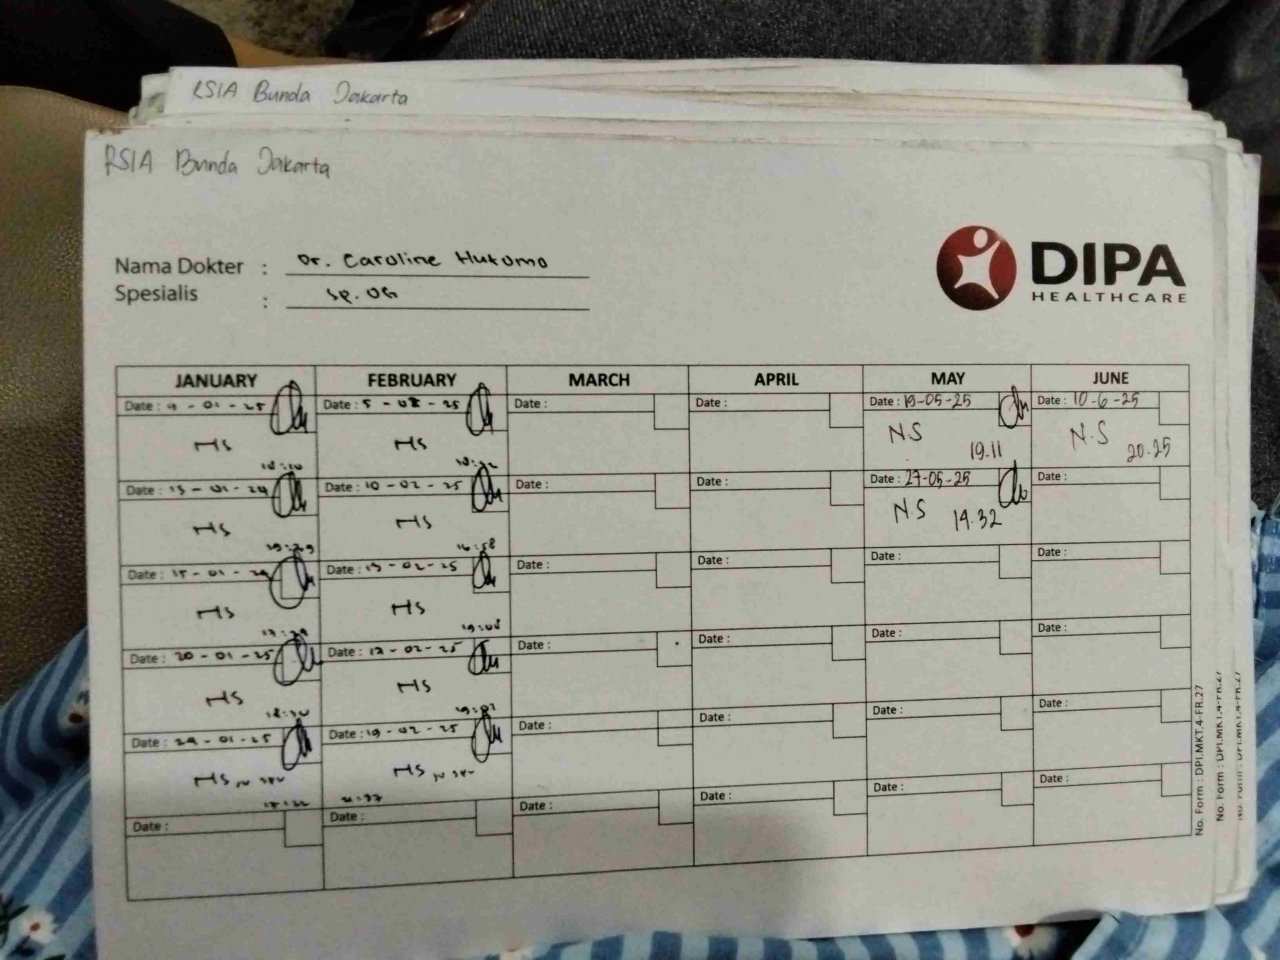 RSIA Bunda Jakarta
RSIA Bunda Jakarta
DIPA
HEALTHCARE
Nama Dokter : Dr. Caroline Hutomo
Spesialis : Sp. OG
JANUARY FEBRUARY MARCH APRIL MAY JUNE
Date : - 01 - 25 Date : 5 - 02 - 25 Date : Date : Date : 19-05-25 Date : 10-6-25
HS HS N.S 19.11 N.S 20.25
Date : 13 - 01 - 24 Date : 10 - 02 - 25 Date : Date : Date : 27-05-25 Date :
HS HS N.S 19.32
Date : 15 - 01 - 24 Date : 13 - 02 - 25 Date : Date : Date : Date :
HS 17:29 HS 19:08
Date : 20 - 01 - 25 Date : 17 - 02 - 25 Date : Date : Date : Date :
HS HS 19:02
Date : 24 - 01 - 25 Date : 19 - 02 - 25 Date : Date : Date : Date :
HS 17:22 HS 21:37
Date : Date : Date : Date : Date : Date :
No. Form : DPI.MKT.4-FR.27
No. Form : DPI.MKT.4-FR.27